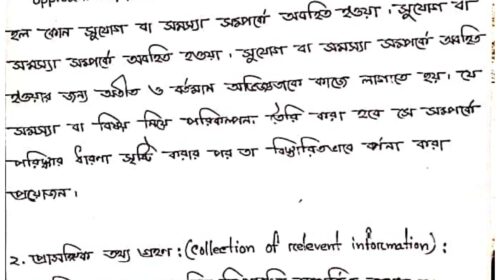 হল কোন সুযোগ বা সমস্যা সম্পর্কে অবহিত হওয়া। সুযোগ বা
সমস্যা সম্পর্কে অবহিত হওয়া। সুযোগ বা সমস্যা সম্পর্কে অবহিত
হওয়ার জন্য অতীত ও বর্তমান অভিজ্ঞতাকে কাজে লাগাতে হয়। যে
সমস্যা বা বিষয় নিয়ে পরিকল্পনা তৈরি করা হবে সে সম্পর্কে
পরিষ্কার ধারণা সৃষ্টি করার পর তা বিস্তারিতভাবে বর্ণনা করা
প্রয়োজন।
২. প্রাসঙ্গিক তথ্য গ্রহণ : (collection of relevent information) :